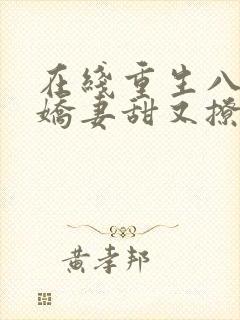 在綫重生八
嬌妻甜又撩
黄孝邦